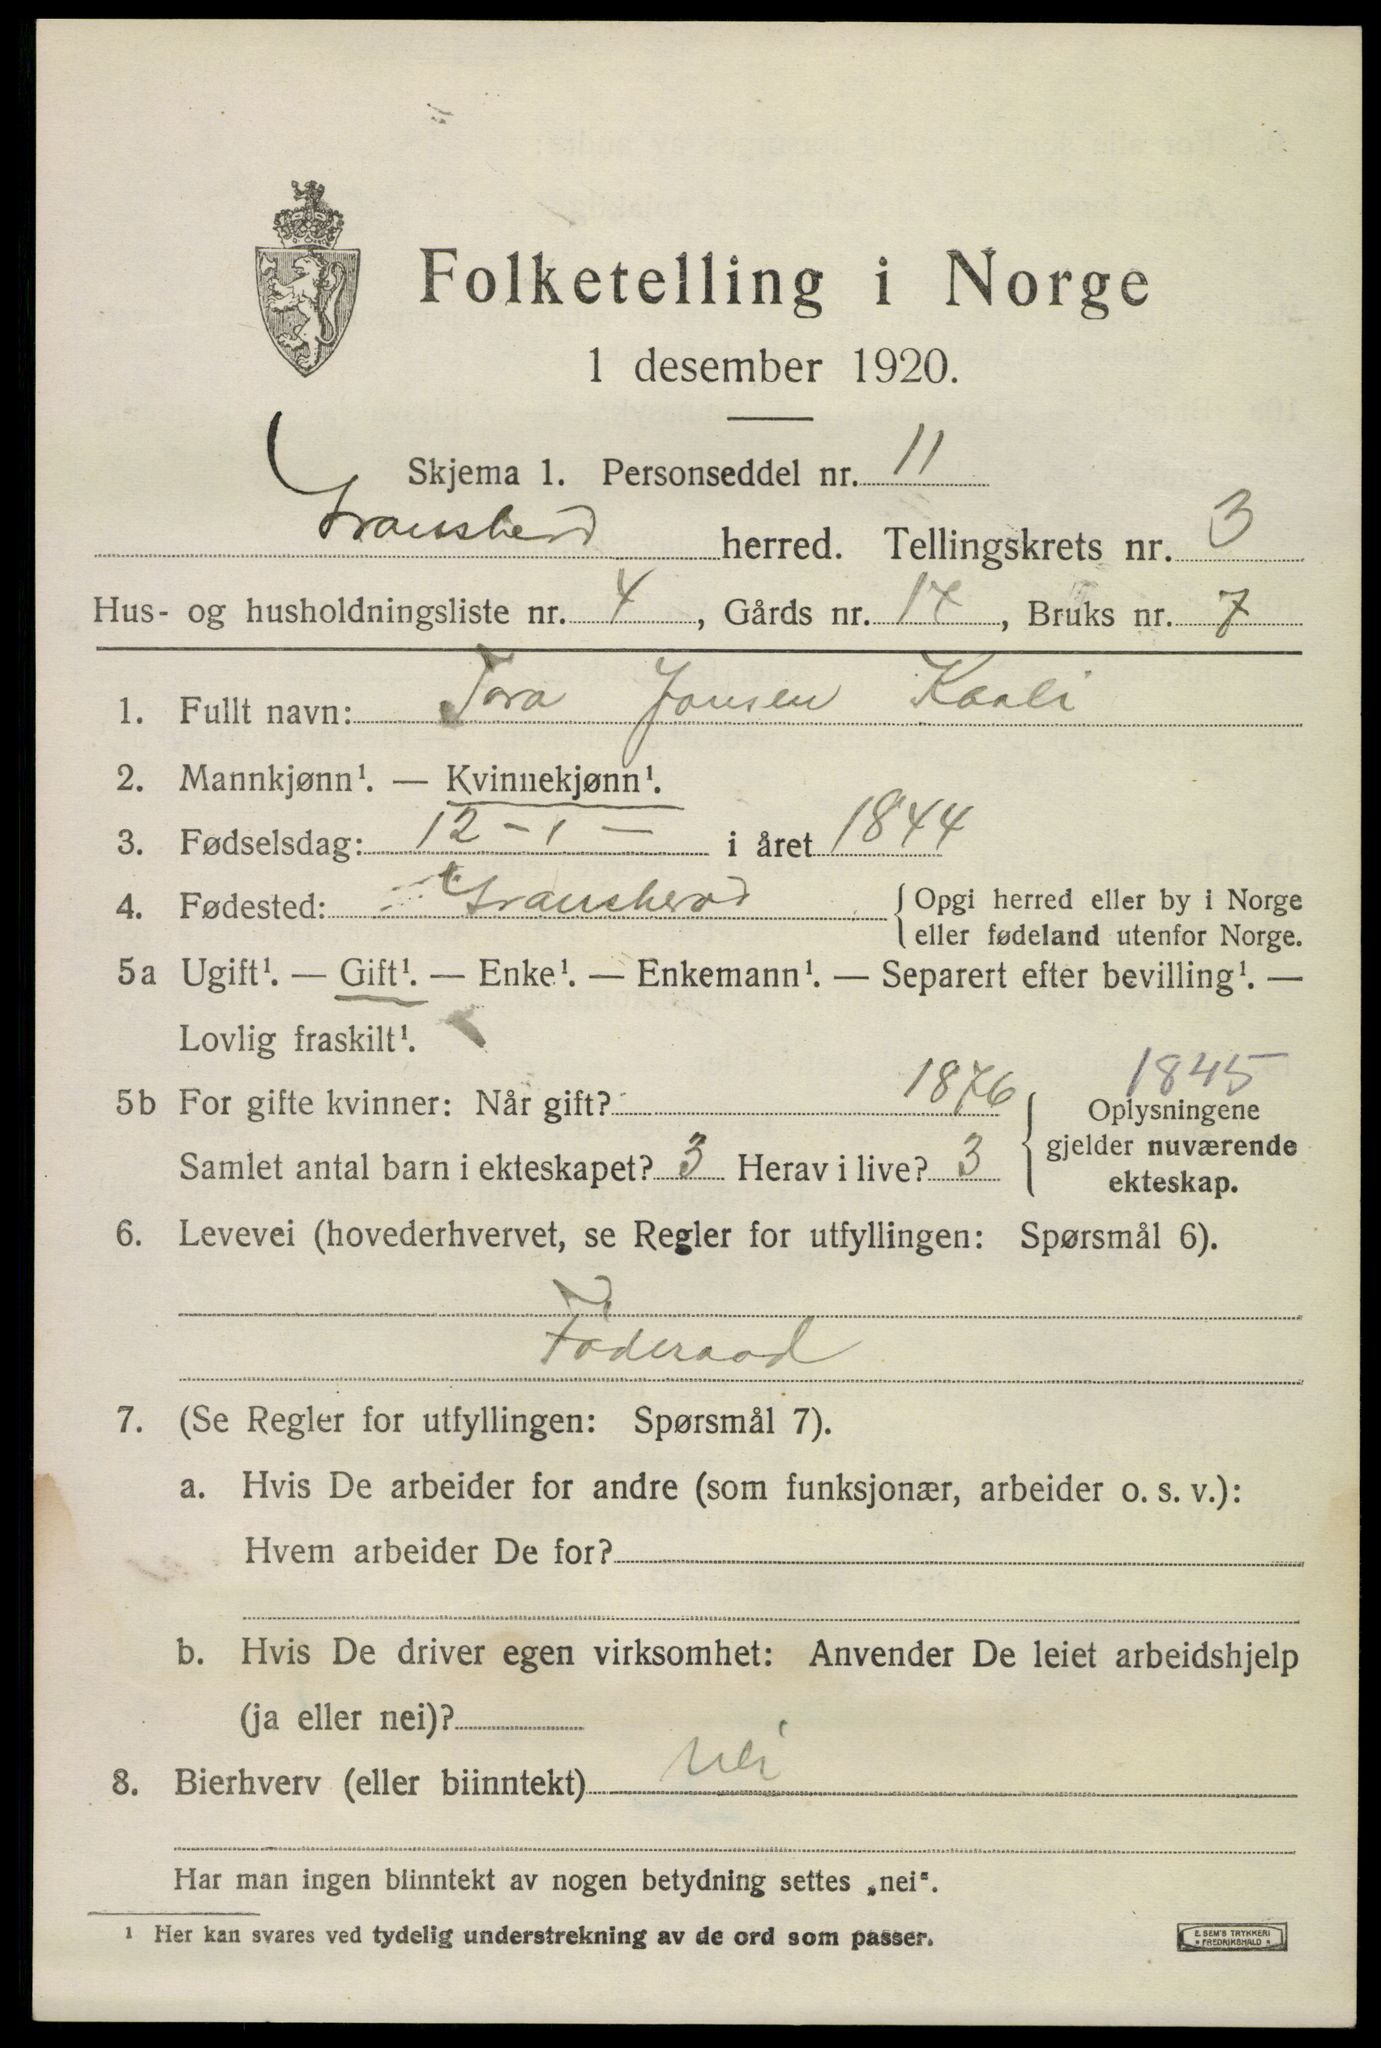 Folketelling i Norge
1 desember 1920.
Skjema 1. Personseddel nr. 11
Gransherd herred. Tellingskrets nr. 3
Hus- og husholdningsliste nr. 4, Gårds nr. 14, Bruks nr. 7
1. Fullt navn: Tora Jonsen Kaali
2. Mannkjønn¹. — Kvinnekjønn¹.
3. Fødselsdag: 12 - 1 - i året 1844
4. Fødested: Gransherad { Opgi herred eller by i Norge
eller fødeland utenfor Norge.
5a Ugift¹. — Gift¹. — Enke¹. — Enkemann¹. — Separert efter bevilling¹. —
Lovlig fraskilt¹.
1845
5b For gifte kvinner: Når gift? 1876 { Oplysningene
gjelder nuværende
Samlet antal barn i ekteskapet? 3 Herav i live? 3
ekteskap.
6. Levevei (hovederhvervet, se Regler for utfyllingen: Spørsmål 6).
Föderaad
7. (Se Regler for utfyllingen: Spørsmål 7).
a. Hvis De arbeider for andre (som funksjonær, arbeider o. s. v.):
Hvem arbeider De for?
b. Hvis De driver egen virksomhet: Anvender De leiet arbeidshjelp
(ja eller nei)?
8. Bierhverv (eller biinntekt) nei
Har man ingen biinntekt av nogen betydning settes „nei“.
¹ Her kan svares ved tydelig understrekning av de ord som passer.
E. SEM'S TRYKKERI
FREDRIKSHALD